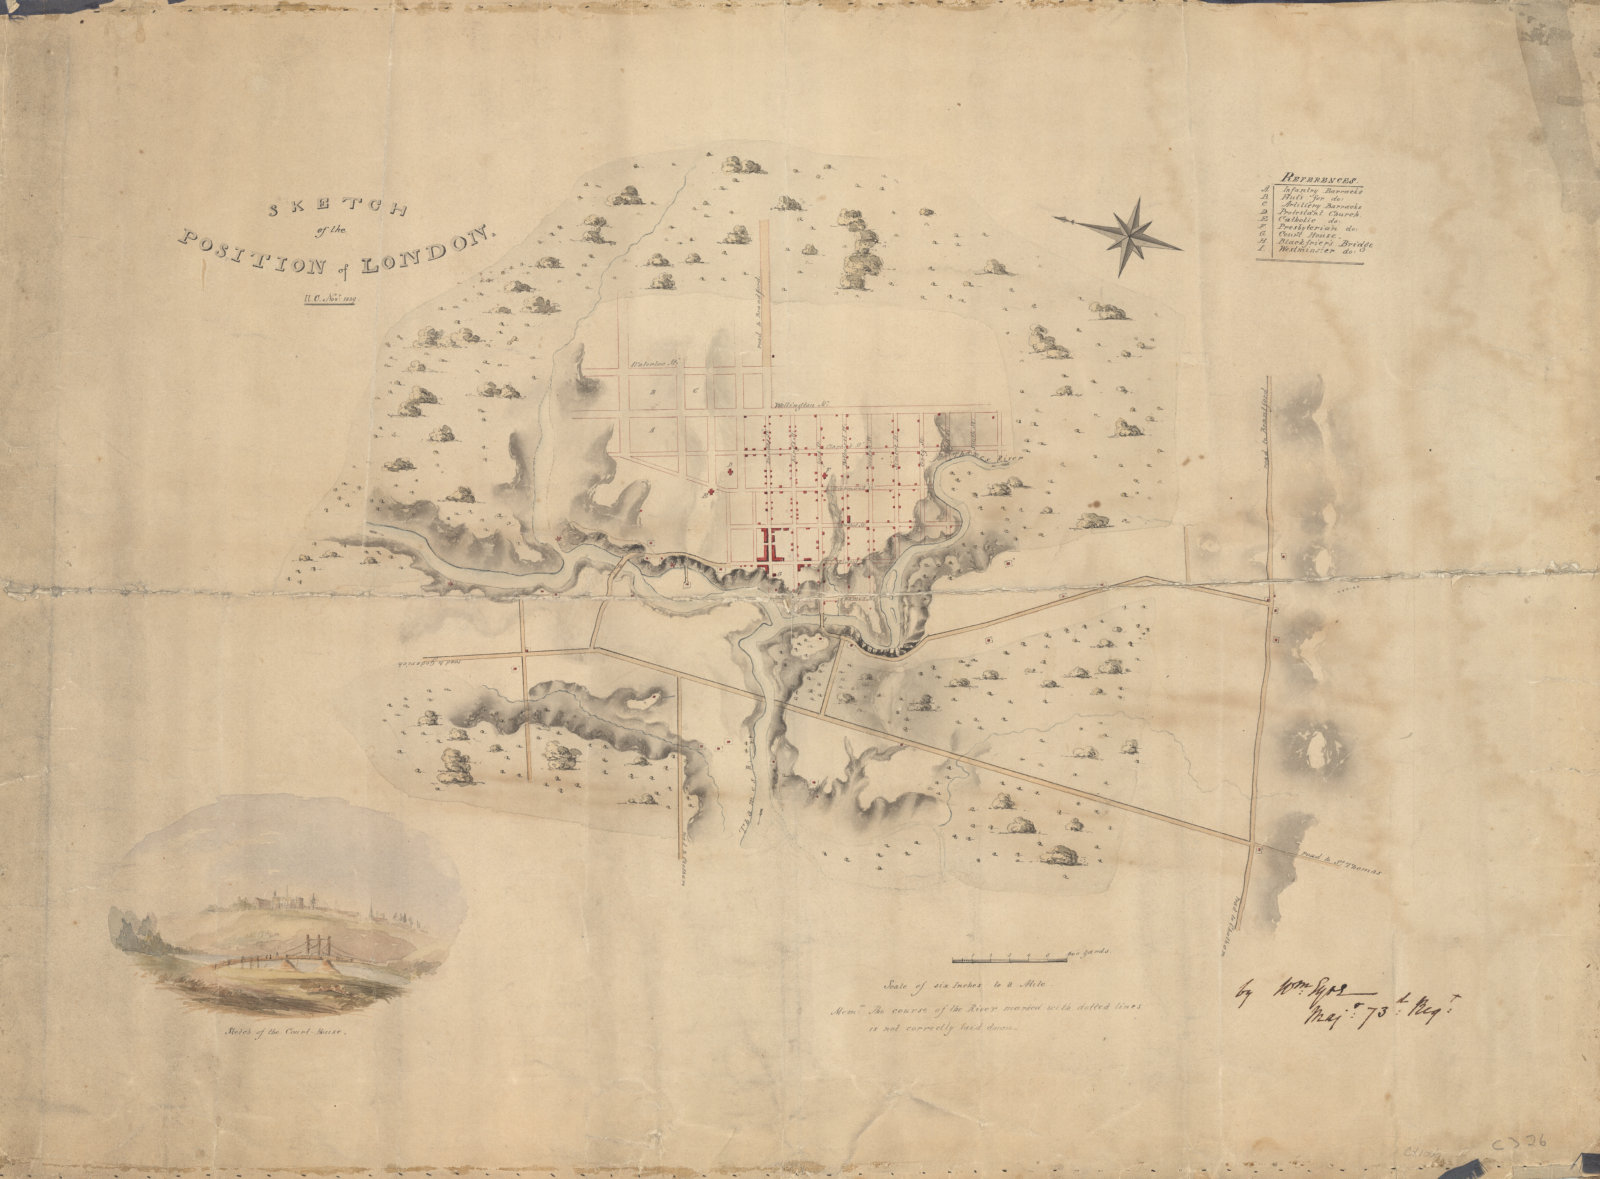 SKETCH
of the
POSITION of LONDON.
U.C. Novr. 1839
REFERENCES.
A Infantry Barracks
B Huts for do:
C Artillery Barracks
D Protestant Church.
E Catholic do:
F Presbyterian do:
G Court House.
H Blackfriers Bridge
I Westminster do:
road to Brantford
Waterloo St.
B
C
A
Wellington St.
Thames River
road to Brantford
road to Goderich
Thames River
road to St. Thomas
600 yards.
Scale of six Inches to a Mile
Memm. The course of the River marked with dotted lines
is not correctly laid down.
Sketch of the Court-House.
by Wm. Eyre
Majr. 73d. Regt.
C) 26